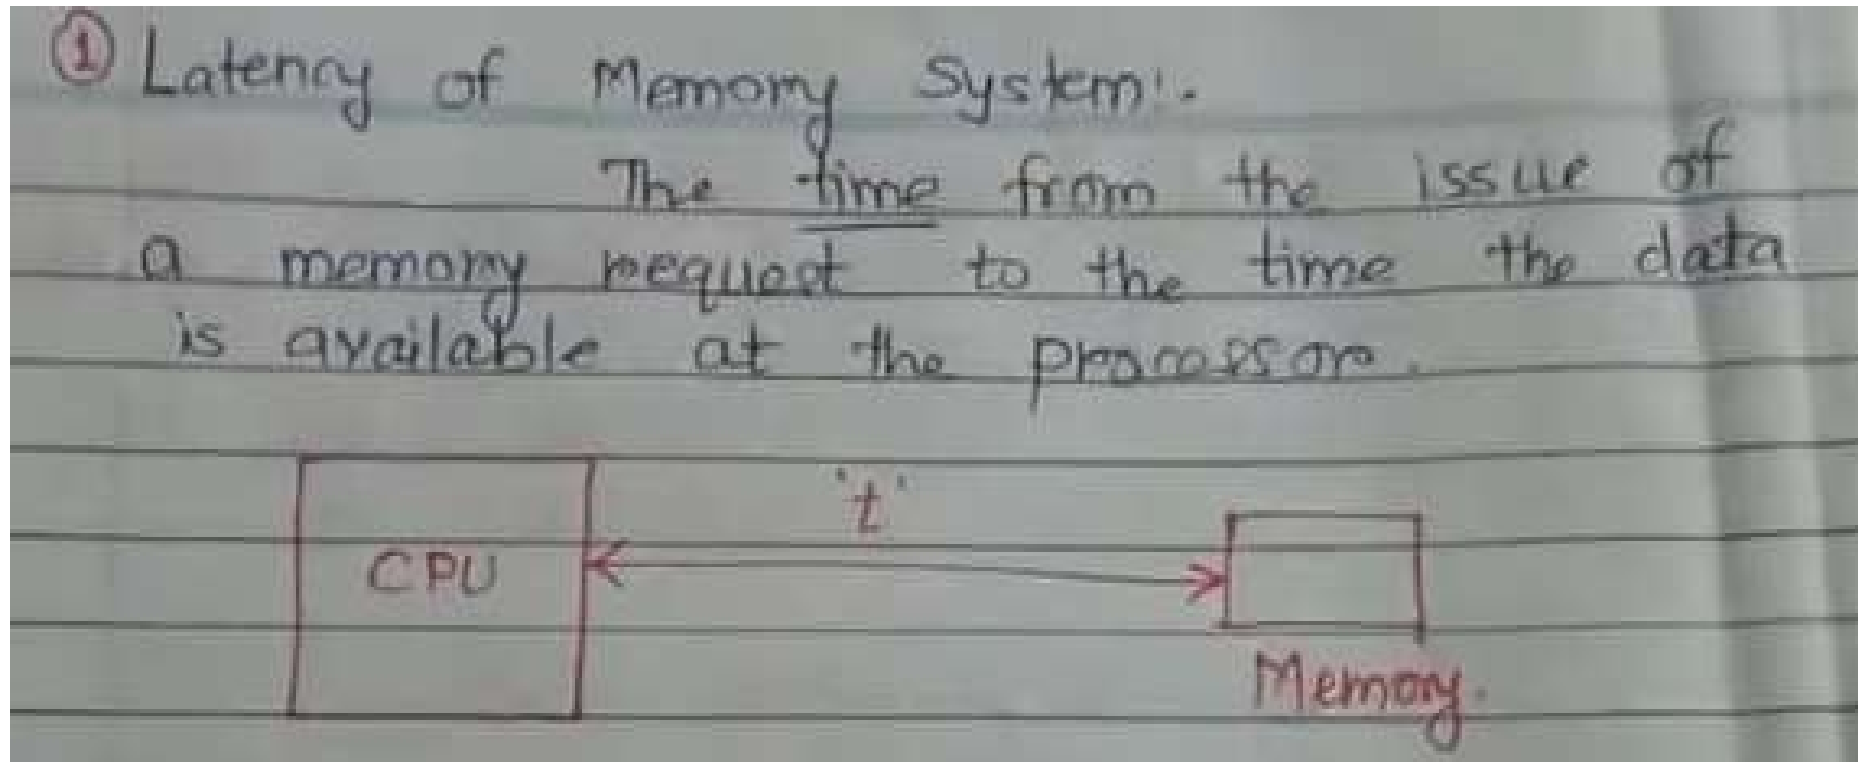 ① Latency of Memory System:-
The time from the issue of
a memory request to the time the data
is available at the processor.
't'
CPU
Memory.